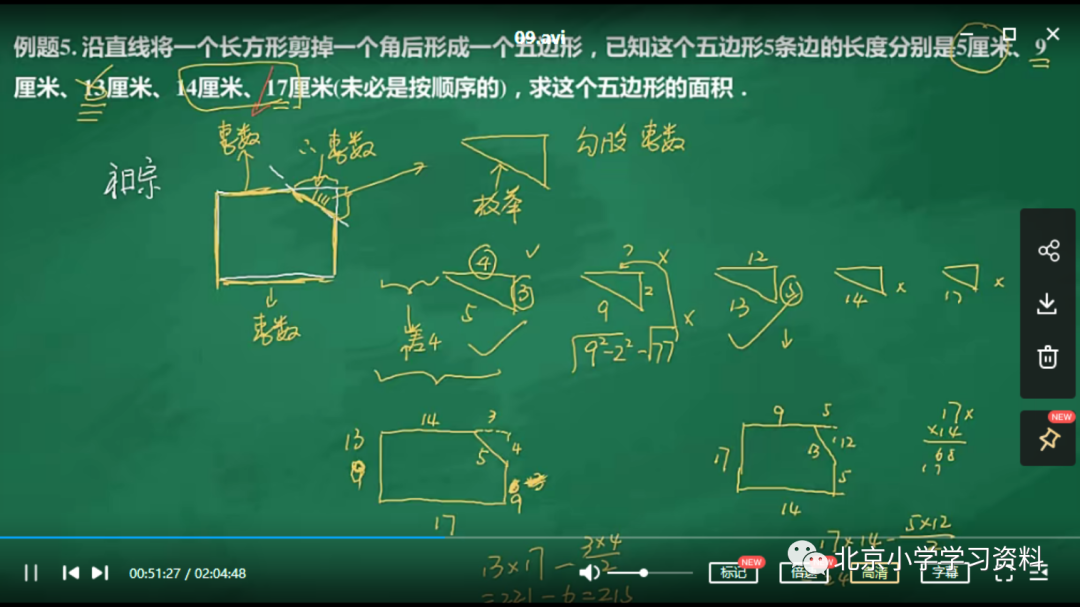 09.avi
例题5. 沿直线将一个长方形剪掉一个角后形成一个五边形，已知这个五边形5条边的长度分别是5厘米、9
厘米、13厘米、14厘米、17厘米(未必是按顺序的)，求这个五边形的面积．
整数
∴整数
勾股 整数
枚举
整数
4
3
5
差4
?
x
2
9
x
√9²-2²=√77
12
5
13
14
x
17
x
14
3
13
5
4
9
17
9
5
17
13
12
5
14
17
×14
68
17
13×17 - 3×4/2
=221-6=215
17×14 - 5×12/2
NEW
00:51:27 / 02:04:48
标记
NEW
倍速
高清
字幕
北京小学学习资料